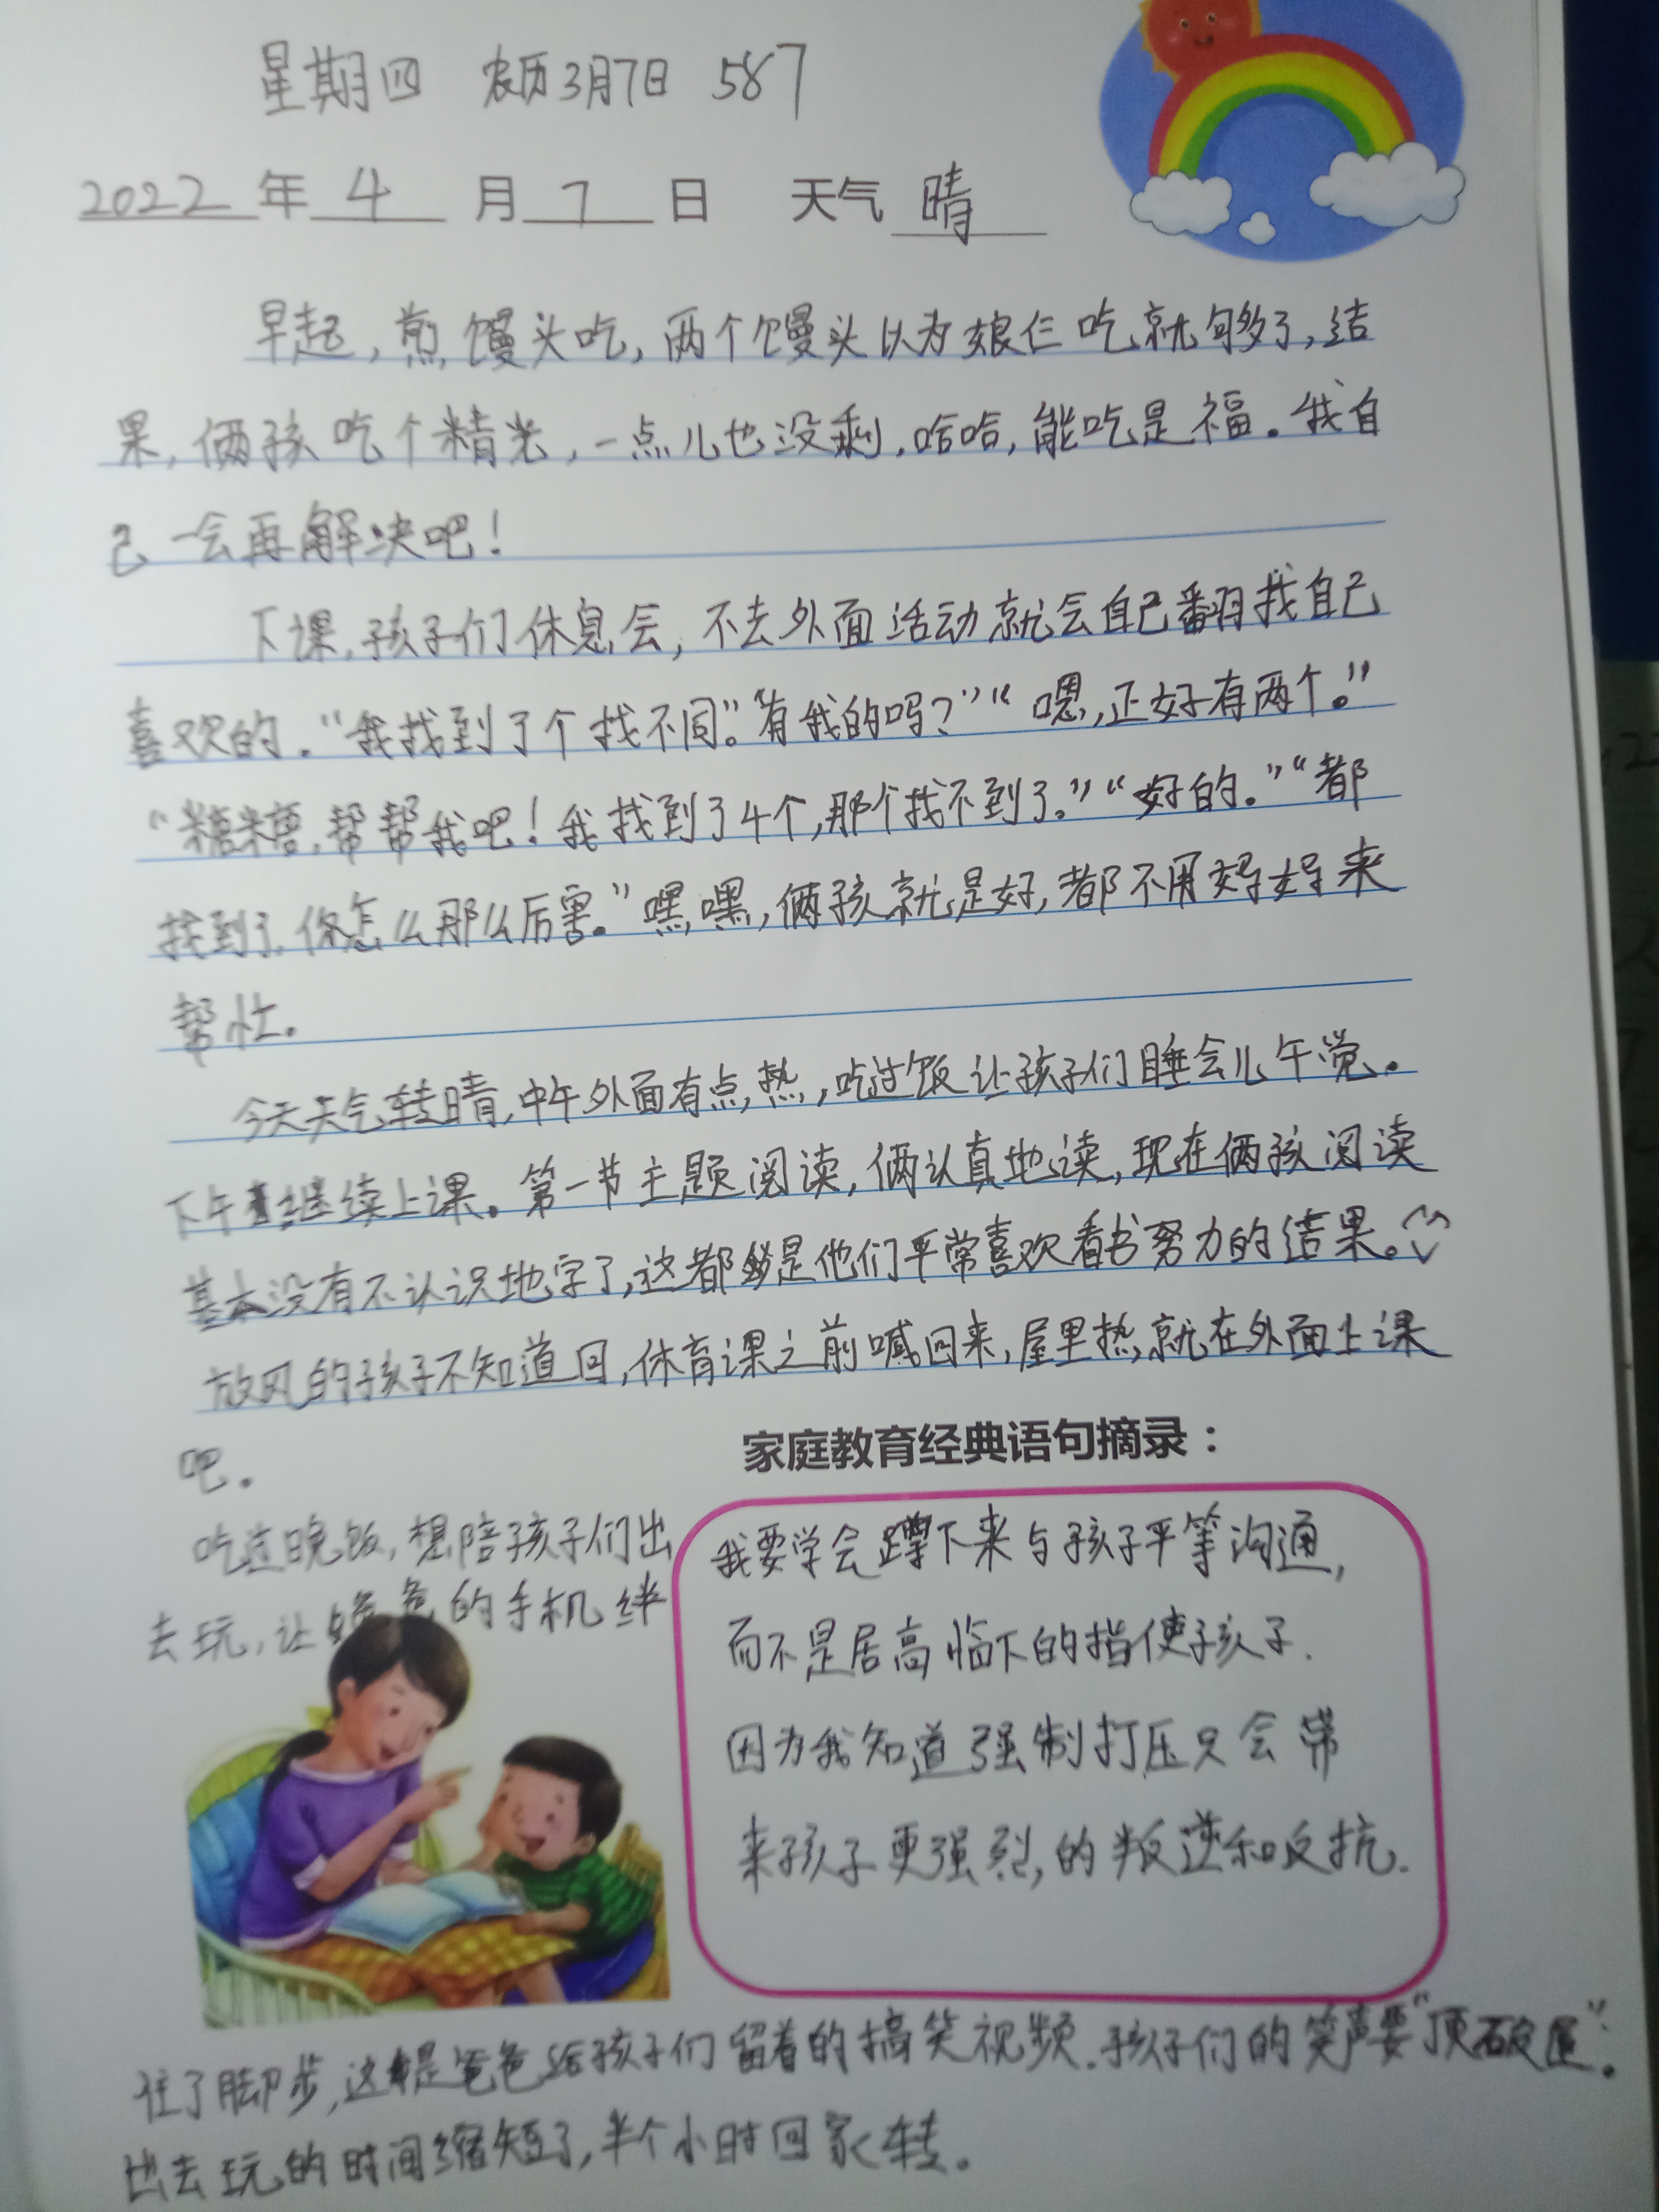 星期四 农历3月7日 587
2022年4月7日 天气晴
早起，煎馒头吃，两个馒头以为娘仨吃就够了，结
果，俩孩吃个精光，一点儿也没剩，哈哈，能吃是福。我自
己一会再解决吧！
下课，孩子们休息会，不去外面活动就会自己翻找自己
喜欢的。“我找到了个找不同。”“有我的吗？”“嗯，正好有两个。”
“糖糖，帮帮我吧！我找到了4个，那个找不到了。”“好的。”“都
找到了，你怎么那么厉害。”嘿嘿，俩孩就是好，都不用妈妈来
帮忙。
今天天气转晴，中午外面有点热，吃过饭让孩子们睡会儿午觉。
下午继续上课。第一节主题阅读，俩认真地读，现在俩孩阅读
基本没有不认识地字了，这都是他们平常喜欢看书努力的结果。
放风的孩子不知道回，体育课之前喊回来，屋里热，就在外面上课
吧。
家庭教育经典语句摘录：
吃过晚饭，想陪孩子们出
去玩，让爸爸的手机绊
我要学会蹲下来与孩子平等沟通，
而不是居高临下的指使孩子.
因为我知道强制打压只会带
来孩子更强烈的叛逆和反抗.
住了脚步，这是爸爸给孩子们留着的搞笑视频.孩子们的笑声要“顶破屋”.
出去玩的时间缩短了，半个小时回家转。